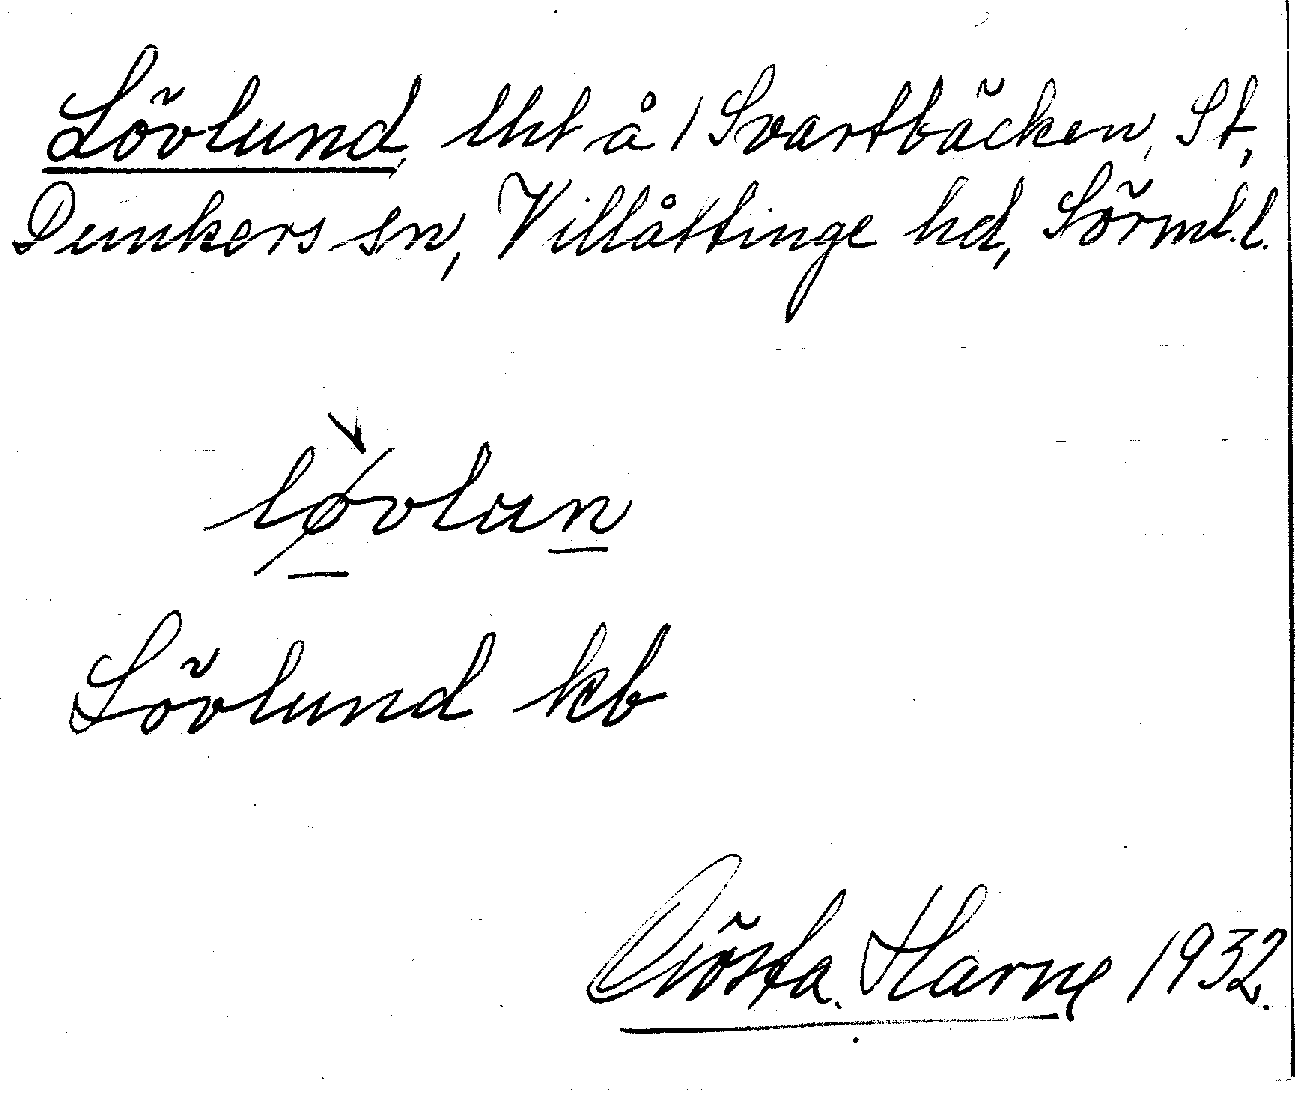 Lövlund, lht å 1 Svartbäcken, St,
Dunkers sn, Villåttinge hd, Sörml.l.
løvlun
Lövlund kb
Gösta Harne 1932.